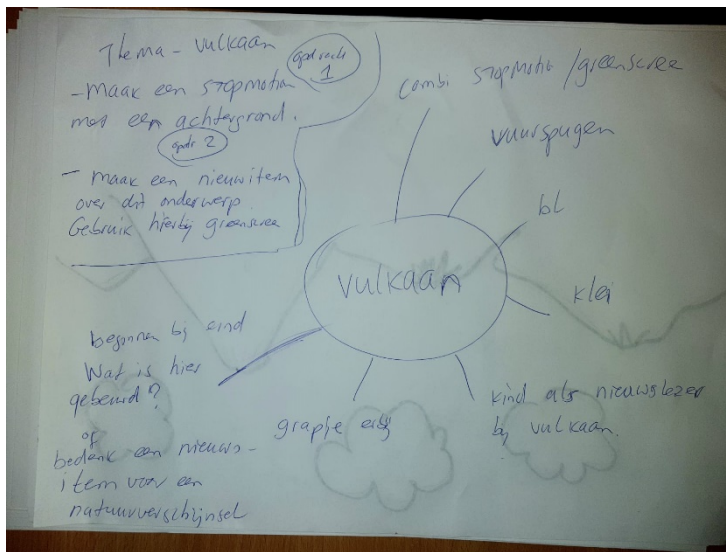 Thema - vulkaan
opdracht 1
- maak een stopmotion
met een achtergrond.
opdr 2
- maak een nieuwitem
over dit onderwerp.
Gebruik hierbij greenscree
combi stopmotion / greenscree
vuurspugen
bl
klei
kind als nieuwslezer
bij vulkaan.
grapje erbij
vulkaan
beginnen bij eind
Wat is hier
gebeurd?
of
bedenk een nieuws-
item voor een
natuurverschijnsel